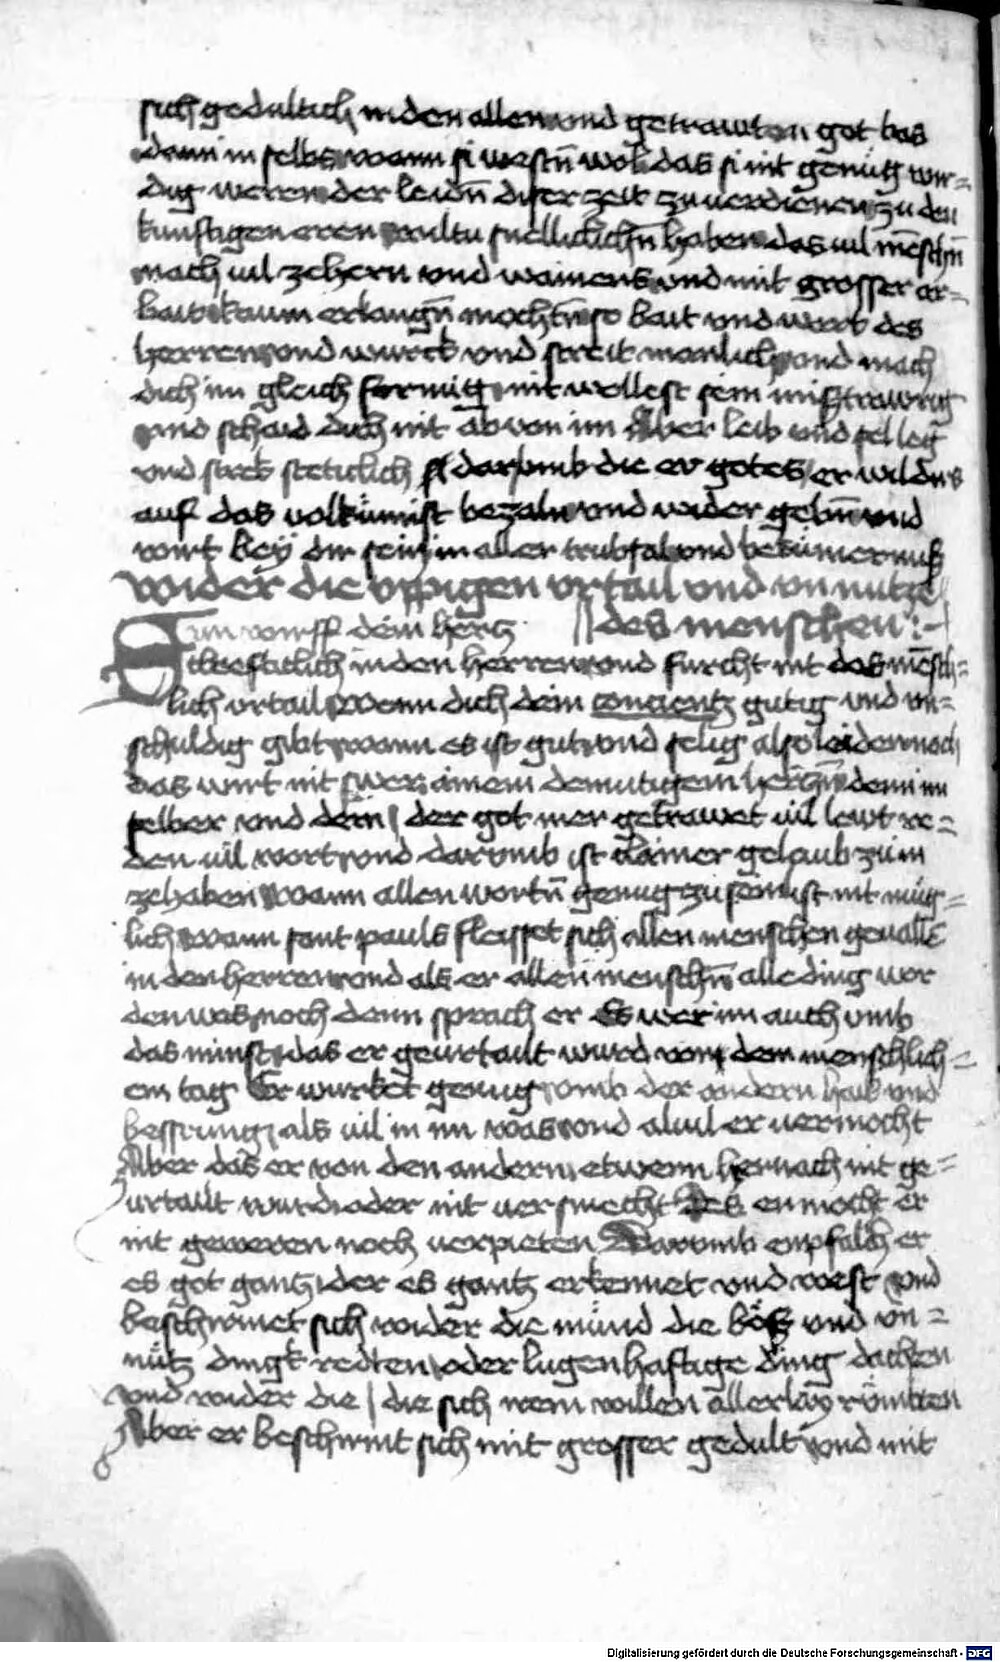 sich gedultich in den allen vnd getrawten got bas
dann in selbs wann si westn̄ wol das si nit genug wir=
dig weren der leidn̄ diser zeit zu uerdienen zu den
kunftigen eren wiltu snellicklichn̄ haben das uil mēschn̄
nach uil zehern vnd wainens vnd mit grosser ar=
bait kaum erlangn̄ mochtn̄ so bait vnd wart des
herren vnd wurck vnd streit manlich vnd mach
dich im gleich formig nit wollest sein mistrawrig
vnd schaid dich nit ab von im Aber leib vnd sel leg
vnd strek steticlich darumb die er gotes er wil dirs
auf das volkümist bezaln vnd wider gebn̄ vnd
wirt bey dir sein in aller trubsal vnd bekümernuß
Wider die vppigen vrtail vnd vnnutze
Sun wirff dein hertz des menschen
steticlich in den herren vnd furcht nit das mēsch=
lich vrtail Wenn dich dein concientz gutig vnd vn=
schuldig gibt wann es ist gut vnd selig also leiden noch
das wirt nit swer ainem demutigem hertzn̄ denn im
selber vnd dem der got mer getrawet uil lewt re=
den uil wort vnd darumb ist klainer gelaub zu in
zehaben Wann allen wortn̄ genug zu sein ist nit mug=
lich Wann sant pauls fleisset sich allen menschen geualle
in den herren vnd als er allen menschn̄ alle ding wor
den was noch denn sprach er Es wer im auch vmb
das minst das er geurtailt wurd von dem menschlich=
em tag Er wurket genug vmb der andern hail vnd
bessrung als uil in im was vnd als uil er uermocht
Aber das er von den andern etwenn hernach nit ge=
urtailt wurd oder nit uersmecht Des en mocht er
nit geweren noch uerpieten Darumb enpfalch er
es got gantz der es gantz erkennet vnd west vnd
beschirmet sich wider die münd die böß vnd vn=
nütz dingk redten oder lugenhaftige ding dachten
vnd wider die die sich irem willen allerlay rümbten
Aber er beschirmt sich mit grosser gedult vnd mit
Digitalisierung gefördert durch die Deutsche Forschungsgemeinschaft - DFG